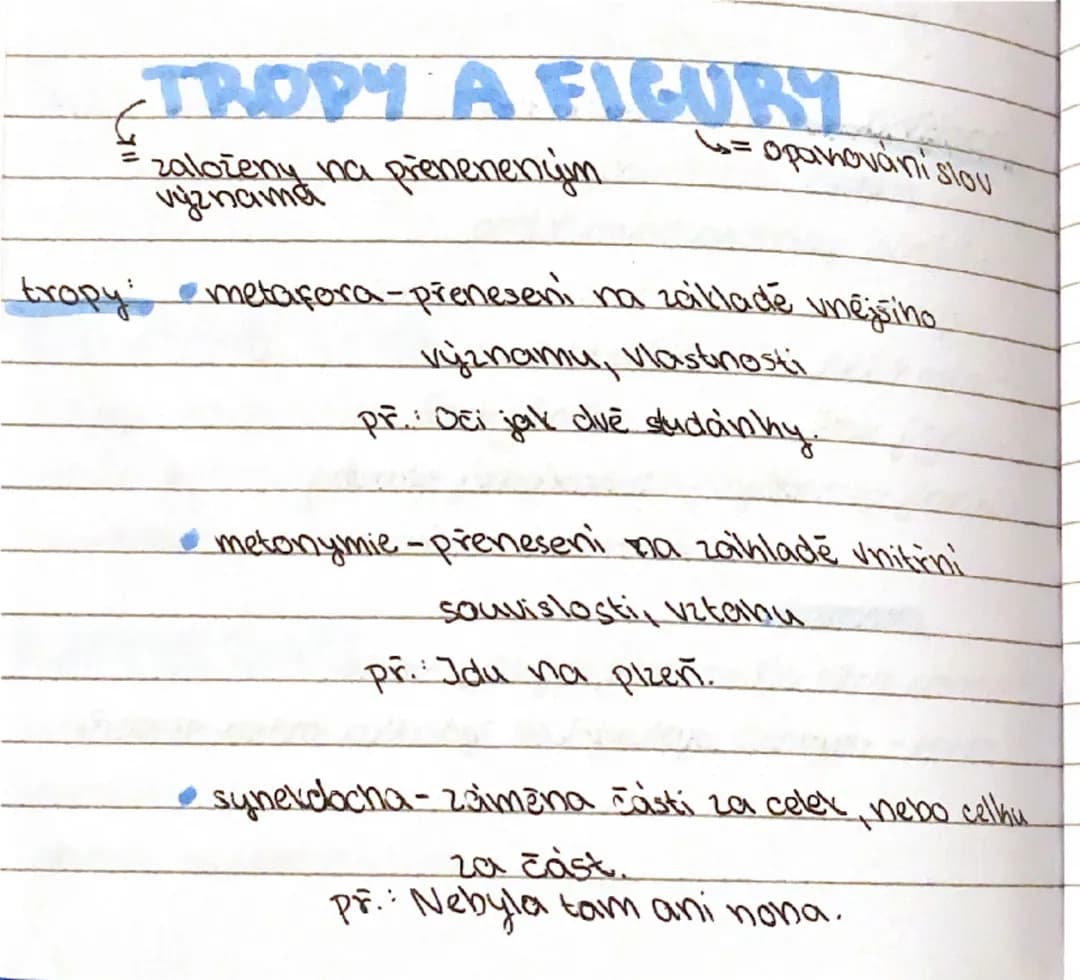 TROPY A FIGURY
= založeny na přeneneným
významů
= opakování slov
tropy: • metafora - přenesení na základě vnějšího
významu, vlastnosti
př.: Oči jak dvě studánky.
• metonymie - přenesení na základě vnitřní
souvislosti, vztahu
př.: Jdu na plzeň.
• synekdocha - záměna části za celek, nebo celku
za část.
př.: Nebyla tam ani noha.